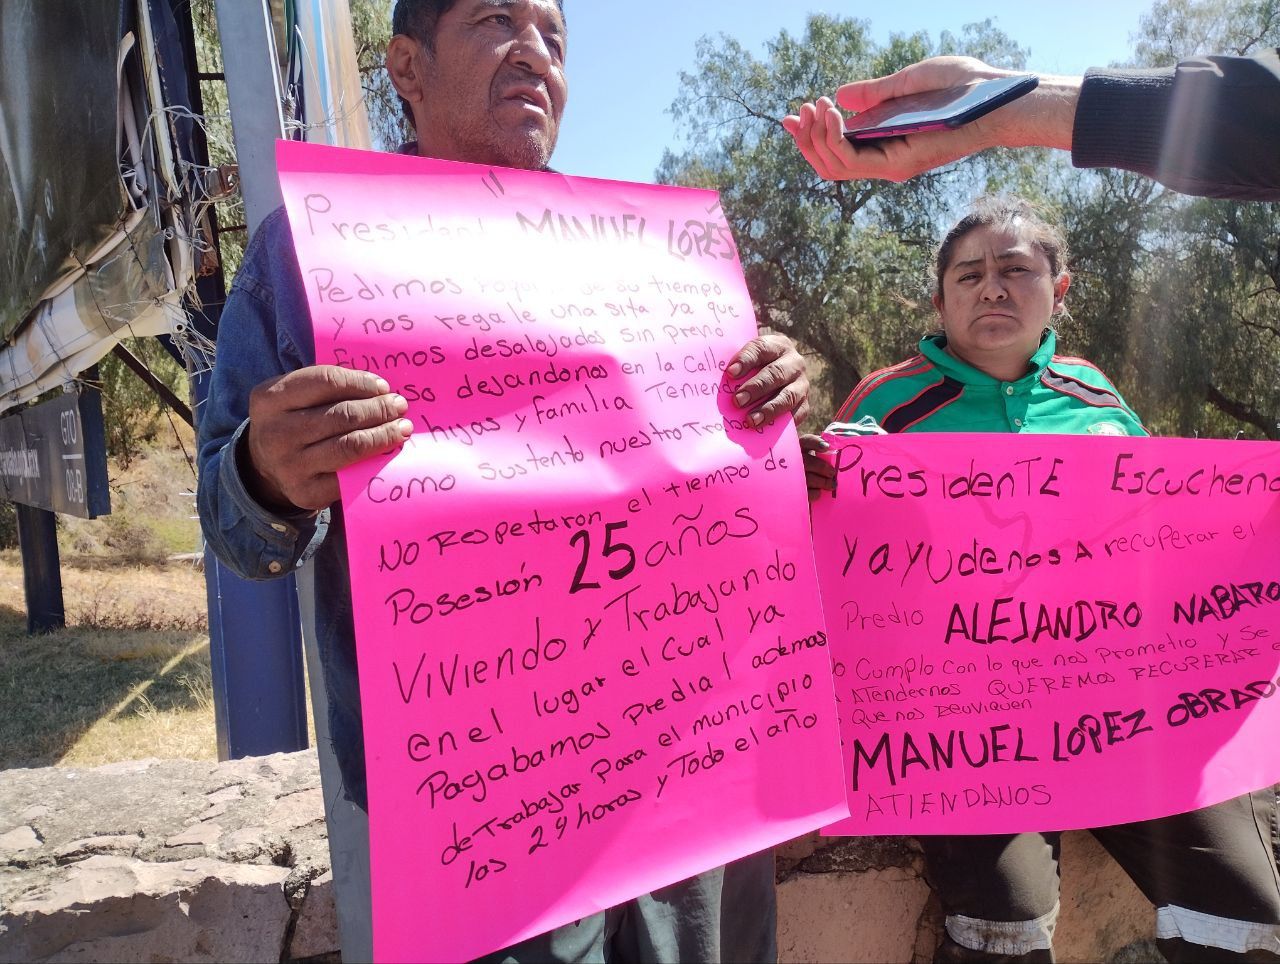 President "MANUEL LOPES
Pedimos de su tiempo
y nos regale una sita ya que
Fuimos desalojados sin previo
dejandonos en la Calle
hijas y familia Teniendo
Como sustento nuestro Trabajo
NO Respetaron el tiempo de
Posesión 25 años
Viviendo y Trabajando
en el lugar el cual ya
Pagabamos Predial ademas
de Trabajar para el municipio
las 24 horas y Todo el año
PresidenTE Escuchenos
Y ayudenos A recuperar el
Predio ALEJANDRO NABARO
Cumplo con lo que nos Prometio y Se
Atendernos QUEREMOS RECUPERAR
Que nos
MANUEL LOPEZ OBRADO
ATIENDANOS
GTO